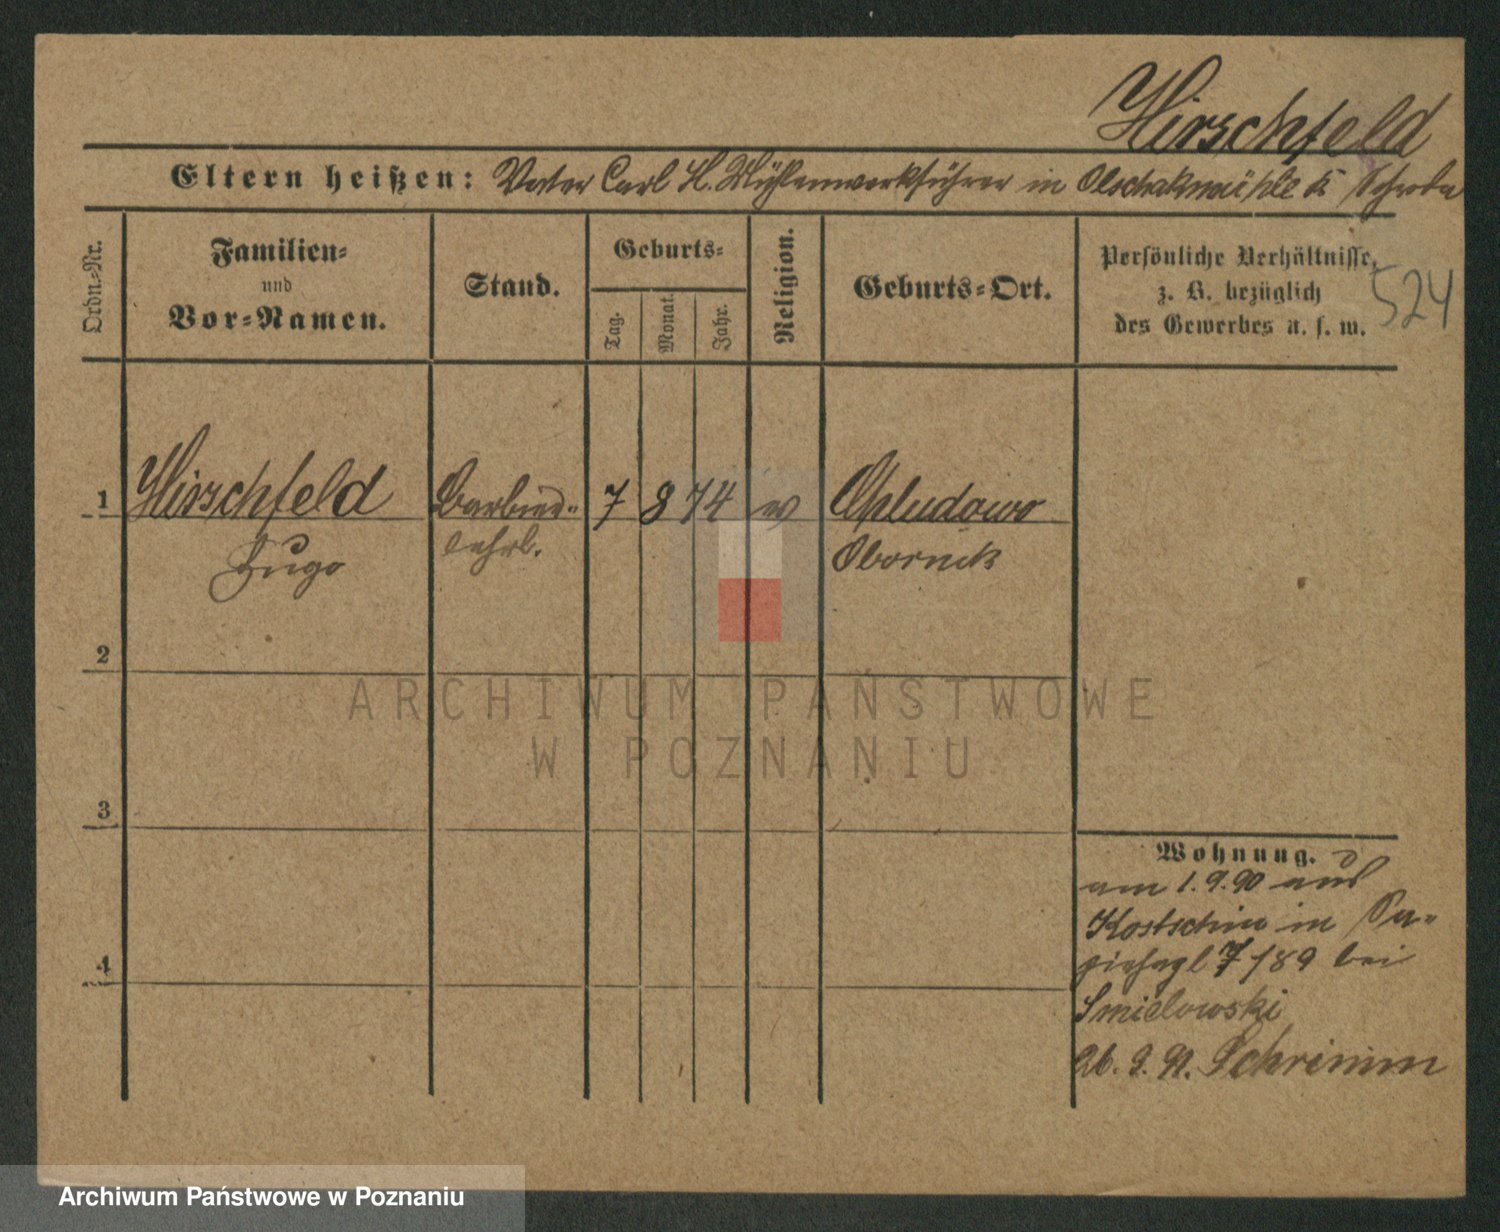 Hirschfeld
Eltern heißen: Vater Carl H. Mühlenwerkführer in Olschakmühle K Schroda
Ordn.-Nr.
Familien-
und
Vor-Namen.
Stand.
Geburts-
Tag.
Monat.
Jahr.
Religion.
Geburts-Ort.
Persönliche Verhältnisse,
z. B. bezüglich
des Gewerbes u. s. w.
524
1 Hirschfeld Barbier- 7 8 74 ev
Hugo lehrl. Obornik
2
3
4
Wohnung.
am 1.9.90 aus
Kostschin in
7/89 bei
Smielowski
26. 9. 91. Schrimm
ARCHIWUM PAŃSTWOWE
W POZNANIU
Archiwum Państwowe w Poznaniu